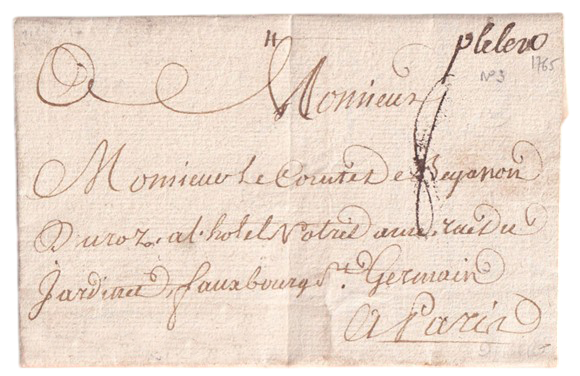 plelero
1765
N° 3
A Monsieur
Monsieur Le Comte de
Duroz. a l'hotel Notre dame, rue du
Jardinet, fauxbourg St. Germain
A Paris